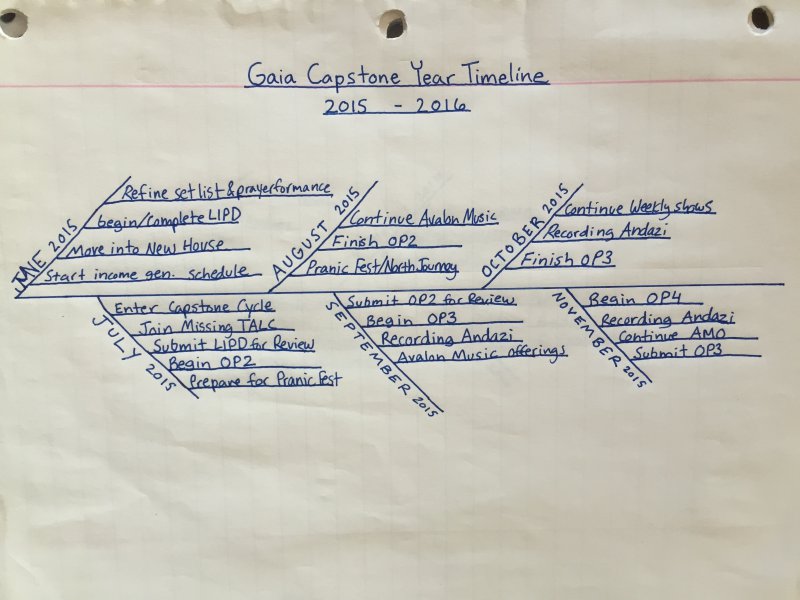 Gaia Capstone Year Timeline
2015 - 2016
JUNE 2015
Refine setlist & prayerformance
begin/complete LIPD
Move into New House
Start income gen. schedule
AUGUST 2015
Continue Avalon Music
Finish OP2
Pranic Fest/North Journey
OCTOBER 2015
Continue Weekly shows
Recording Andazi
Finish OP3
JULY 2015
Enter Capstone Cycle
Join Missing TALC
Submit LIPD for Review
Begin OP2
Prepare for Pranic Fest
SEPTEMBER 2015
Submit OP2 for Review
Begin OP3
Recording Andazi
Avalon Music offerings
NOVEMBER 2015
Begin OP4
Recording Andazi
Continue AMO
Submit OP3